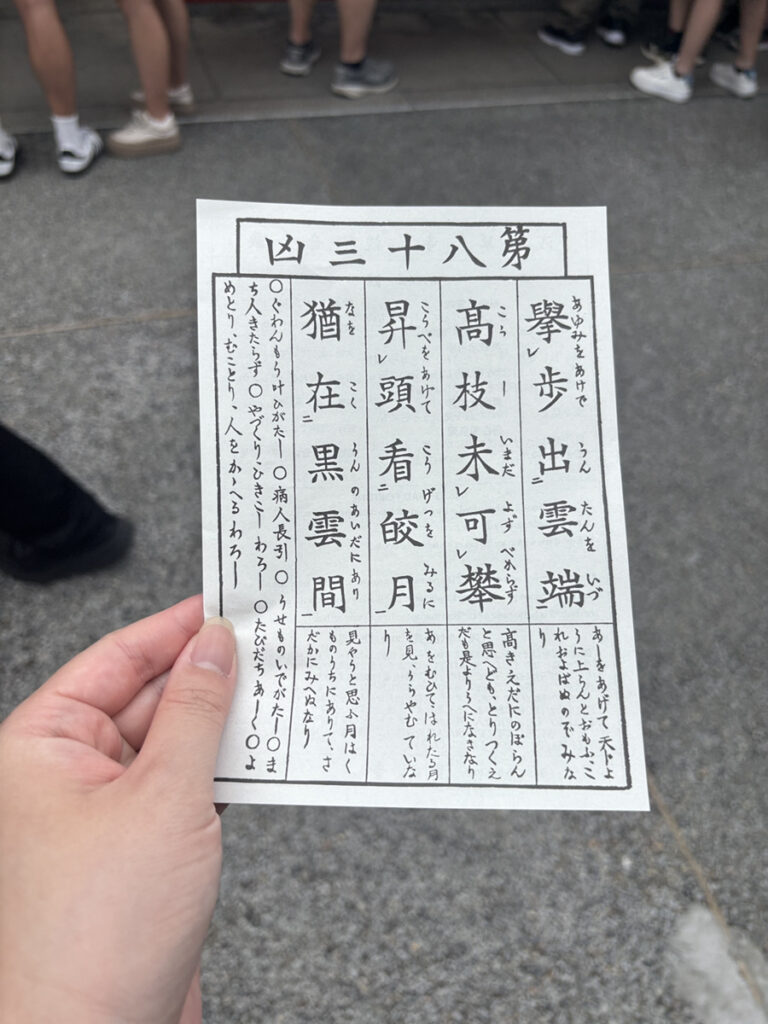 第八十三凶
擧歩出雲端
あゆみをあけで うん たんを いづ
あしをあげて天下よ
うに上らんとおもふ、こ
れおよばぬのぞみな
り
髙枝未可攀
こう し いまだ よず べからず
高きえだにのぼらん
と思へども、とりつくえ
だも是よりうへになきなり
昇頭看皎月
こうべを あけて こう げつを みるに
あをむひてはれたる月
を見、うらやむていな
り
猶在黒雲間
なを こく うん のあいだに あり
見やうと思ふ月はく
ものうちにありて、さ
だかにみへぬなり
○ぐわんもう叶ひがたし ○病人長引 ○うせものいでがたし○ま
ち人きたらず○やづくり、ひきこしわろし ○たびだちあしく○よ
めとり、むことり、人をかゝへるわろし